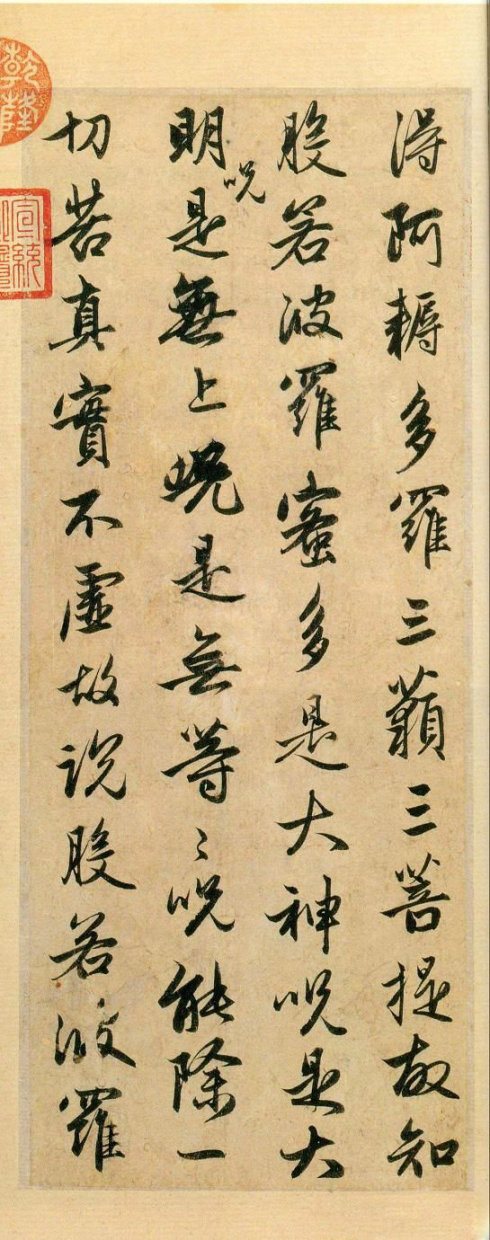 得阿耨多羅三藐三菩提故知
般若波羅蜜多是大神咒是大
明咒是無上咒是無等〻咒能除一
切苦真實不虛故說般若波羅
乾隆
宣統